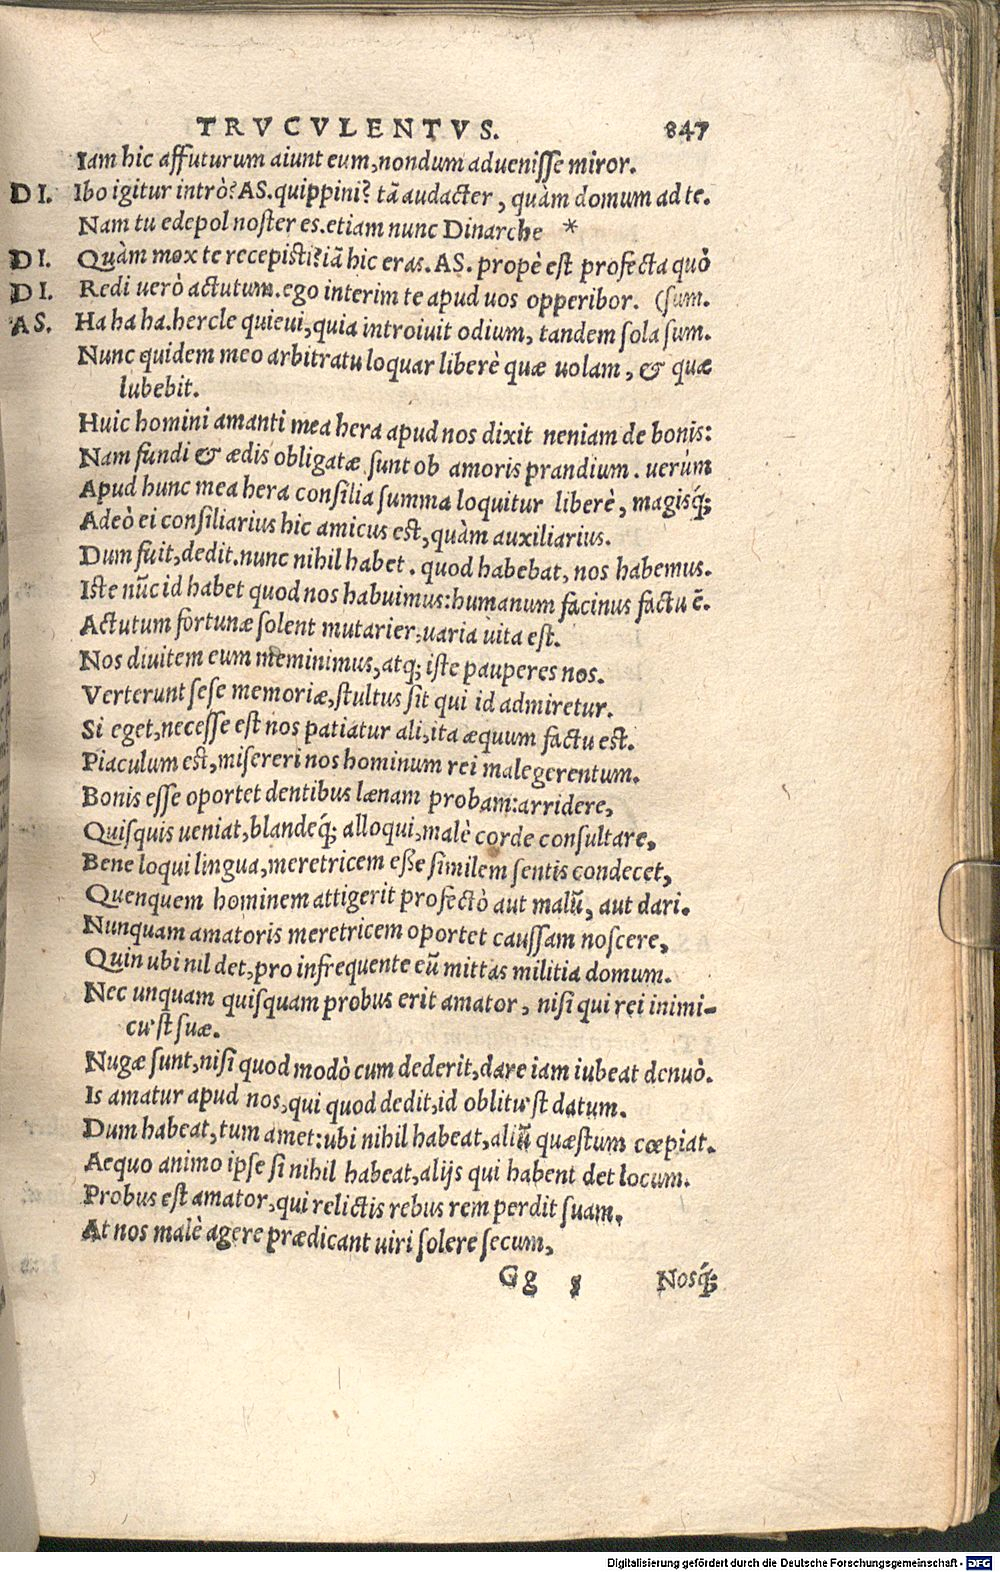 TRVCVLENTVS. 847
Iam hic affuturum aiunt eum, nondum aduenisse miror.
DI. Ibo igitur intrò? AS. quippini? tã audacter, quàm domum ad te.
Nam tu edepol noster es. etiam nunc Dinarche *
DI. Quàm mox te recepisti? iã hic eras. AS. propè est profecta quò
DI. Redi uerò actutum. ego interim te apud uos opperibor. (sum.
AS. Ha ha ha. hercle quieui, quia introiuit odium, tandem sola sum.
Nunc quidem meo arbitratu loquar liberè quæ uolam, & quæ
lubebit.
Huic homini amanti mea hera apud nos dixit neniam de bonis:
Nam fundi & ædis obligatæ sunt ob amoris prandium. uerùm
Apud hunc mea hera consilia summa loquitur liberè, magisq́;
Adeò ei consiliarius hic amicus est, quàm auxiliarius.
Dum fuit, dedit. nunc nihil habet. quod habebat, nos habemus.
Iste nũc id habet quod nos habuimus: humanum facinus factu ẽ.
Actutum fortunæ solent mutarier, uaria uita est.
Nos diuitem eum meminimus, atq; iste pauperes nos.
Verterunt sese memoriæ, stultus sit qui id admiretur.
Si eget, necesse est nos patiatur ali, ita æquum factu est.
Piaculum est, misereri nos hominum rei malegerentum.
Bonis esse oportet dentibus lænam probam: arridere,
Quisquis ueniat, blandeq́; alloqui, malè corde consultare,
Bene loqui lingua, meretricem esse similem sentis condecet,
Quenquem hominem attigerit profectò aut malũ, aut dari.
Nunquam amatoris meretricem oportet caussam noscere,
Quin ubi nil det, pro infrequente eũ mittas militia domum.
Nec unquam quisquam probus erit amator, nisi qui rei inimi-
cu'st suæ.
Nugæ sunt, nisi quod modò cum dederit, dare iam iubeat denuò.
Is amatur apud nos, qui quod dedit, id oblitu'st datum.
Dum habeat, tum amet: ubi nihil habeat, aliũ quæstum cœpiat.
Aequo animo ipse si nihil habeat, alijs qui habent det locum.
Probus est amator, qui relictis rebus rem perdit suam.
At nos malè agere prædicant uiri solere secum,
Gg Nosq́;
Digitalisierung gefördert durch die Deutsche Forschungsgemeinschaft - DFG